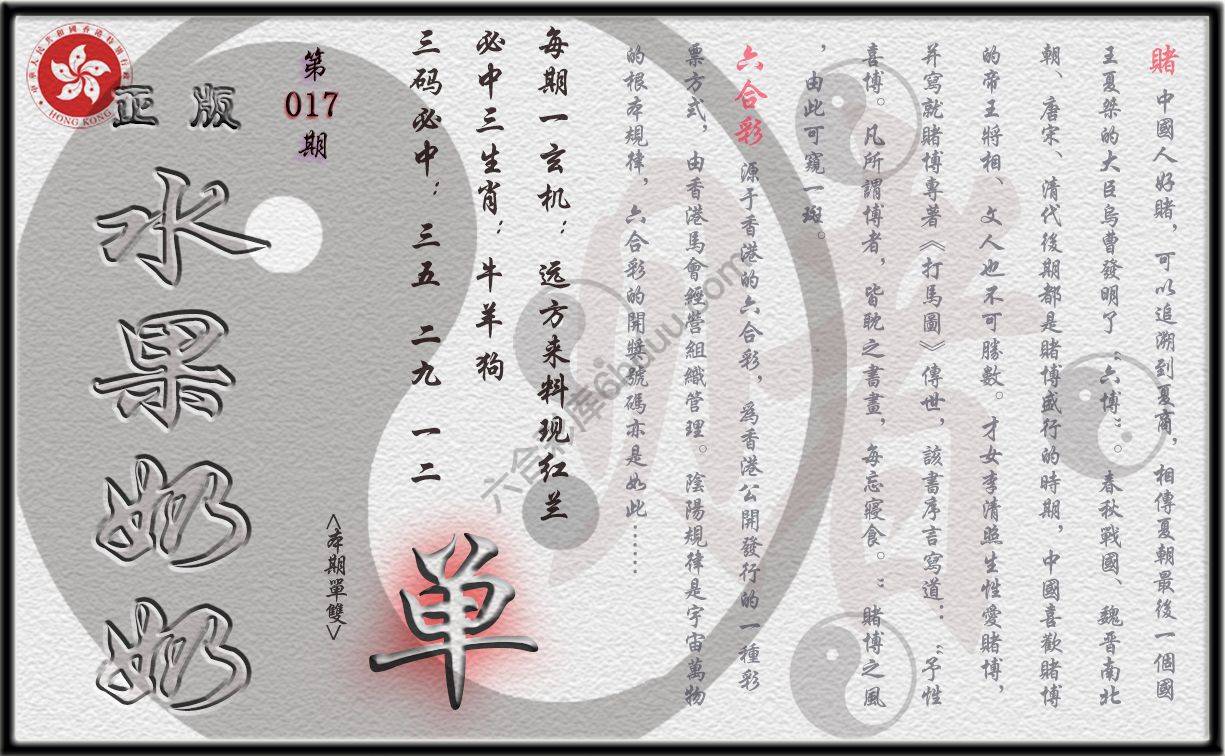 賭 中國人好賭，可以追溯到夏商，相傳夏朝最後一個國
王夏桀的大臣烏曹發明了“六博”。春秋戰國、魏晋南北
朝、唐宋、清代後期都是賭博盛行的時期，中國喜歡賭博
的帝王將相、文人也不可勝數。才女李清照生性愛賭博，
并寫就賭博專著《打馬圖》傳世，該書序言寫道：“予性
喜博。凡所謂博者，皆耽之書畫，每忘寢食。”賭博之風
，由此可窺一斑。
六合彩 源于香港的六合彩，爲香港公開發行的一種彩
票方式，由香港馬會經營組織管理。陰陽規律是宇宙萬物
的根本規律，六合彩的開獎號碼亦是如此……
每期一玄机：远方来料现红兰
必中三生肖：牛羊狗
三码必中：三五 二九 一二
单
<本期單雙>
第
017
期
正版
水果奶奶
中華人民共和國香港特別行政區
HONG KONG